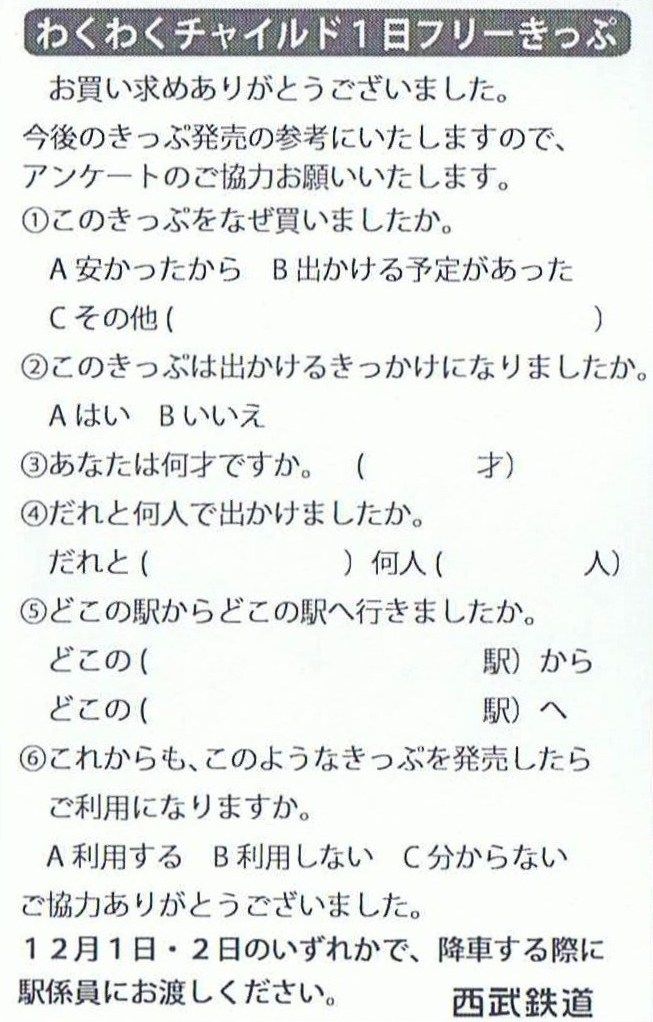 わくわくチャイルド１日フリーきっぷ
お買い求めありがとうございました。
今後のきっぷ発売の参考にいたしますので、
アンケートのご協力お願いいたします。
①このきっぷをなぜ買いましたか。
A 安かったから　B 出かける予定があった
C その他 (　　　　　　　　　　　　　　　)
②このきっぷは出かけるきっかけになりましたか。
A はい　B いいえ
③あなたは何才ですか。　(　　　　才)
④だれと何人で出かけましたか。
だれと (　　　　　　　) 何人 (　　　　　人)
⑤どこの駅からどこの駅へ行きましたか。
どこの (　　　　　　　　　　　　駅) から
どこの (　　　　　　　　　　　　駅) へ
⑥これからも、このようなきっぷを発売したら
ご利用になりますか。
A 利用する　B 利用しない　C 分からない
ご協力ありがとうございました。
１２月１日・２日のいずれかで、降車する際に
駅係員にお渡しください。　西武鉄道